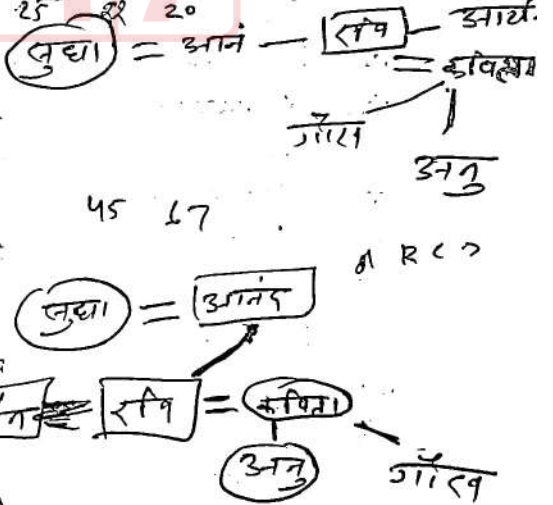 25 22 20
सुधा = आनं — रवि — आर्य
=
गौरव
अनु
45 17
सुधा = आनंद
रवि = कविता
अनु गौरव